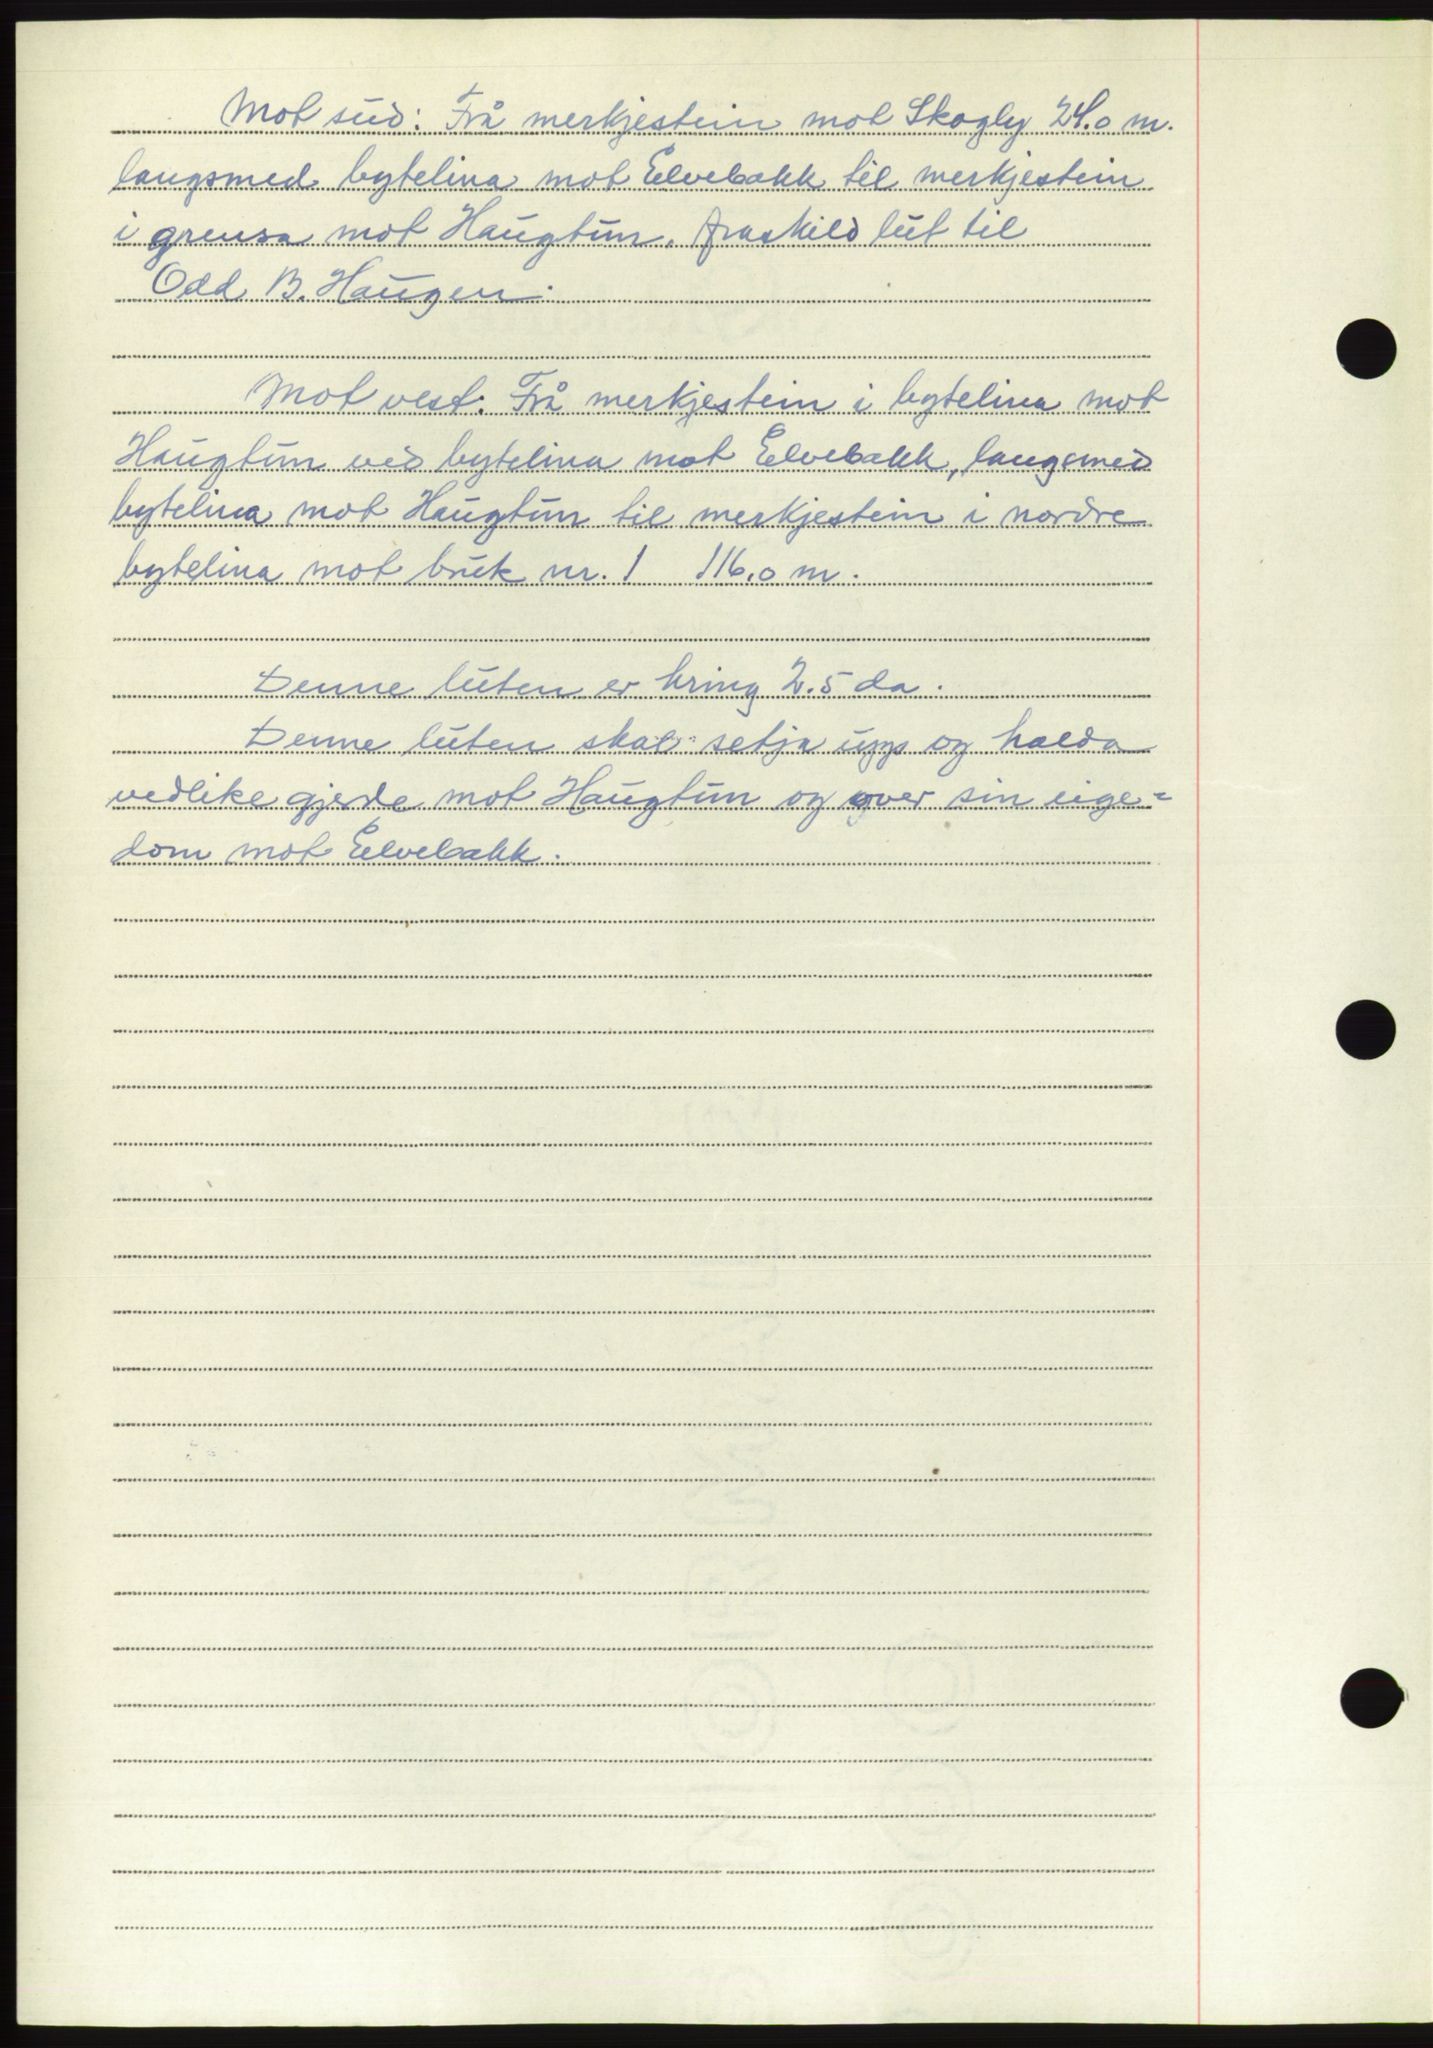 Mot sud: Frå merkjestein mot Skogly 24.0 m.
langsmed bytelina mot Elvebakk til merkjestein
i grensa mot Haugtun, fraskild lut til
Odd B. Haugen.
Mot vest: Frå merkjestein i bytelina mot
Haugtun ved bytelina mot Elvebakk, langsmed
bytelina mot Haugtun til merkjestein i nordre
bytelina mot bruk nr. 1 116.0 m.
Denne luten er kring 2.5 da.
Denne luten skal setja upp og halda
vedlike gjerde mot Haugtun og yver sin eige-
dom mot Elvebakk.